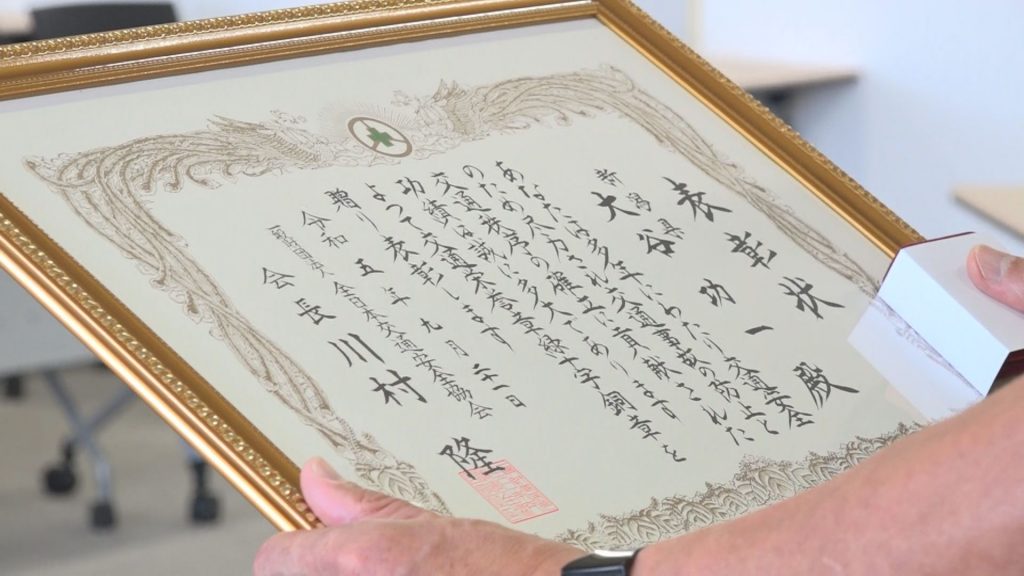 表彰状
新潟県
大谷功一殿
あなたは多年にわたり交通安全
のため尽力され交通事故の防止と
交通秩序の確立に貢献された
功績は誠に多大であります
よって交通栄誉章緑十字銅章を
贈り表彰します
令和五年九月二十一日
一般財団法人全日本交通安全協会
会長川村隆